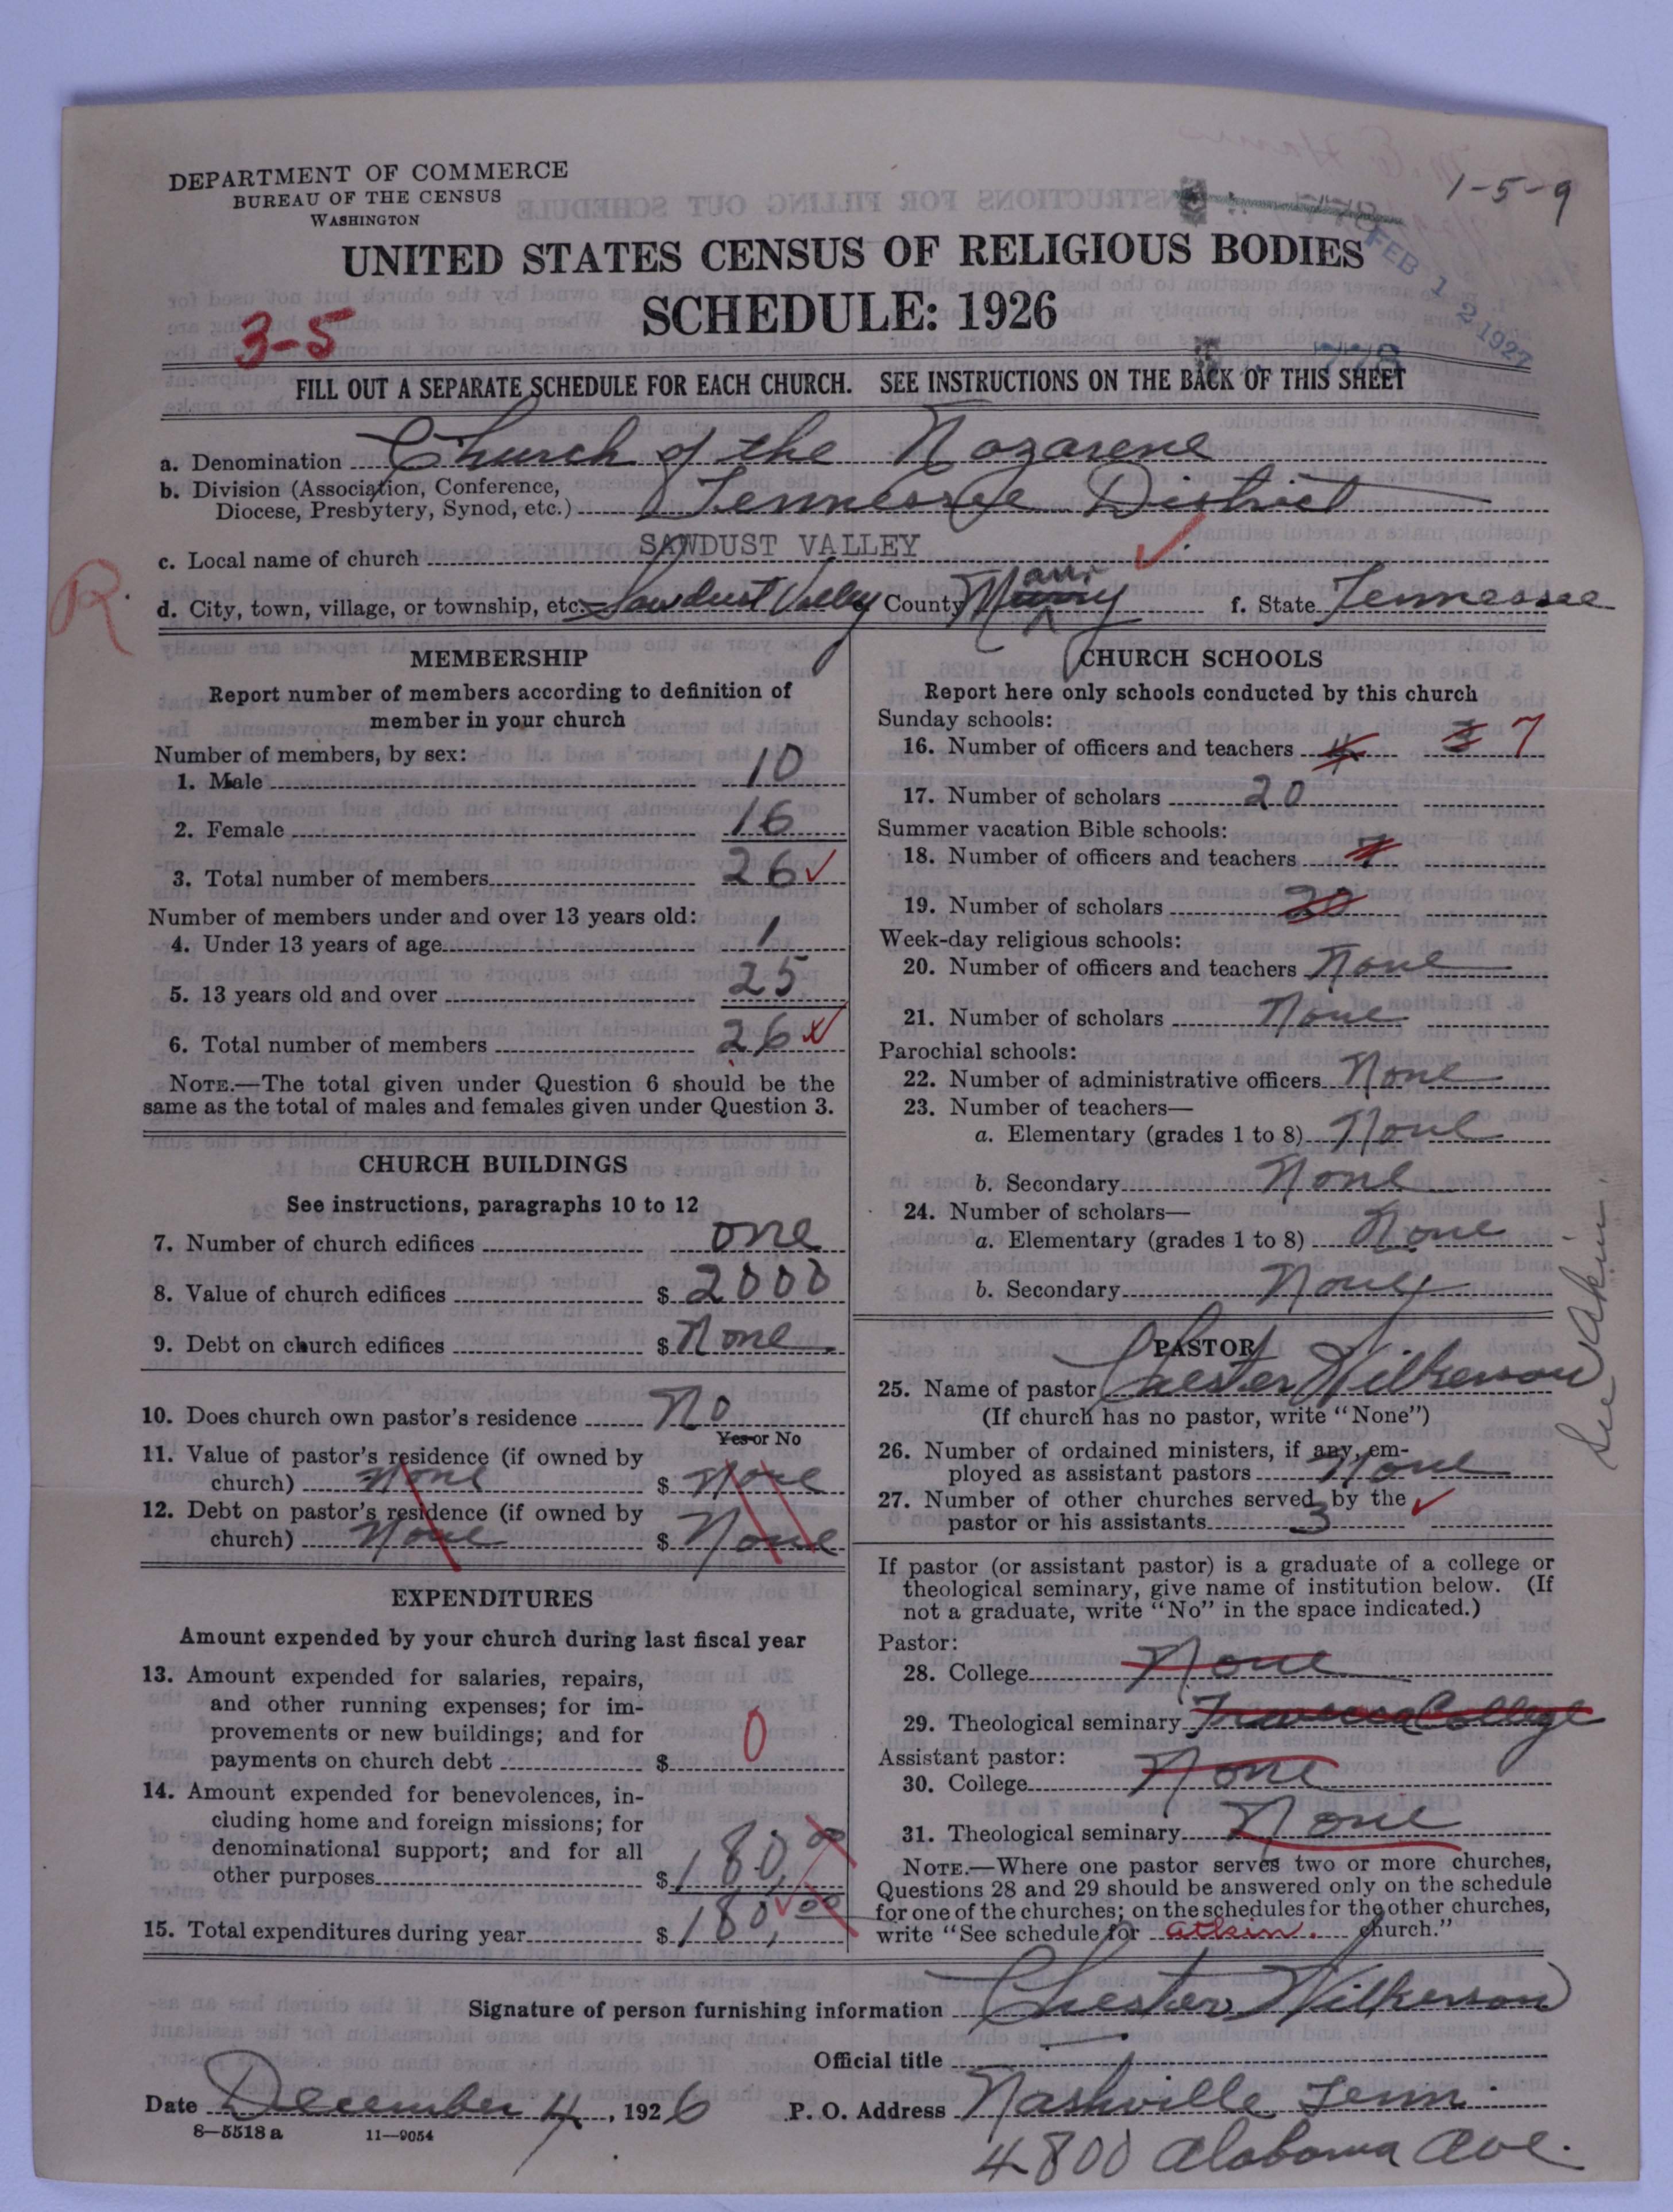 1-5-9
DEPARTMENT OF COMMERCE
BUREAU OF THE CENSUS
WASHINGTON
UNITED STATES CENSUS OF RELIGIOUS BODIES
FEB 12 1927
SCHEDULE: 1926
3-5
778
FILL OUT A SEPARATE SCHEDULE FOR EACH CHURCH. SEE INSTRUCTIONS ON THE BACK OF THIS SHEET
a. Denomination Church of the Nazarene
b. Division (Association, Conference,
Diocese, Presbytery, Synod, etc.) Tennessee District
c. Local name of church SAWDUST VALLEY
R.
d. City, town, village, or township, etc. Sawdust Valley County Maury f. State Tennessee
MEMBERSHIP
Report number of members according to definition of
member in your church
Number of members, by sex:
1. Male 10
2. Female 16
3. Total number of members 26
Number of members under and over 13 years old:
4. Under 13 years of age 1
5. 13 years old and over 25
6. Total number of members 26
NOTE.—The total given under Question 6 should be the
same as the total of males and females given under Question 3.
CHURCH BUILDINGS
See instructions, paragraphs 10 to 12
7. Number of church edifices one
8. Value of church edifices $ 2000
9. Debt on church edifices $ None
10. Does church own pastor's residence No
Yes or No
11. Value of pastor's residence (if owned by
church) None $ None
12. Debt on pastor's residence (if owned by
church) None $ None
EXPENDITURES
Amount expended by your church during last fiscal year
13. Amount expended for salaries, repairs,
and other running expenses; for im-
provements or new buildings; and for
payments on church debt $ 0
14. Amount expended for benevolences, in-
cluding home and foreign missions; for
denominational support; and for all
other purposes $ 180,00
15. Total expenditures during year $ 180,00
CHURCH SCHOOLS
Report here only schools conducted by this church
Sunday schools:
16. Number of officers and teachers 4 3 7
17. Number of scholars 20
Summer vacation Bible schools:
18. Number of officers and teachers 7
19. Number of scholars 20
Week-day religious schools:
20. Number of officers and teachers None
21. Number of scholars None
Parochial schools:
22. Number of administrative officers None
23. Number of teachers—
a. Elementary (grades 1 to 8) None
b. Secondary None
24. Number of scholars—
a. Elementary (grades 1 to 8) None
b. Secondary None
PASTOR
25. Name of pastor Chester Wilkerson
(If church has no pastor, write "None")
26. Number of ordained ministers, if any, em-
ployed as assistant pastors None
27. Number of other churches served by the
pastor or his assistants 3
See Akin.
If pastor (or assistant pastor) is a graduate of a college or
theological seminary, give name of institution below. (If
not a graduate, write "No" in the space indicated.)
Pastor:
28. College None
29. Theological seminary Trevecca College
Assistant pastor:
30. College None
31. Theological seminary None
NOTE.—Where one pastor serves two or more churches,
Questions 28 and 29 should be answered only on the schedule
for one of the churches; on the schedules for the other churches,
write "See schedule for atkin. church."
Signature of person furnishing information Chester Wilkerson
Official title
Date December 4, 1926 P. O. Address Nashville Tenn.
8—5518 a 11—9054
4800 Alabama Ave.